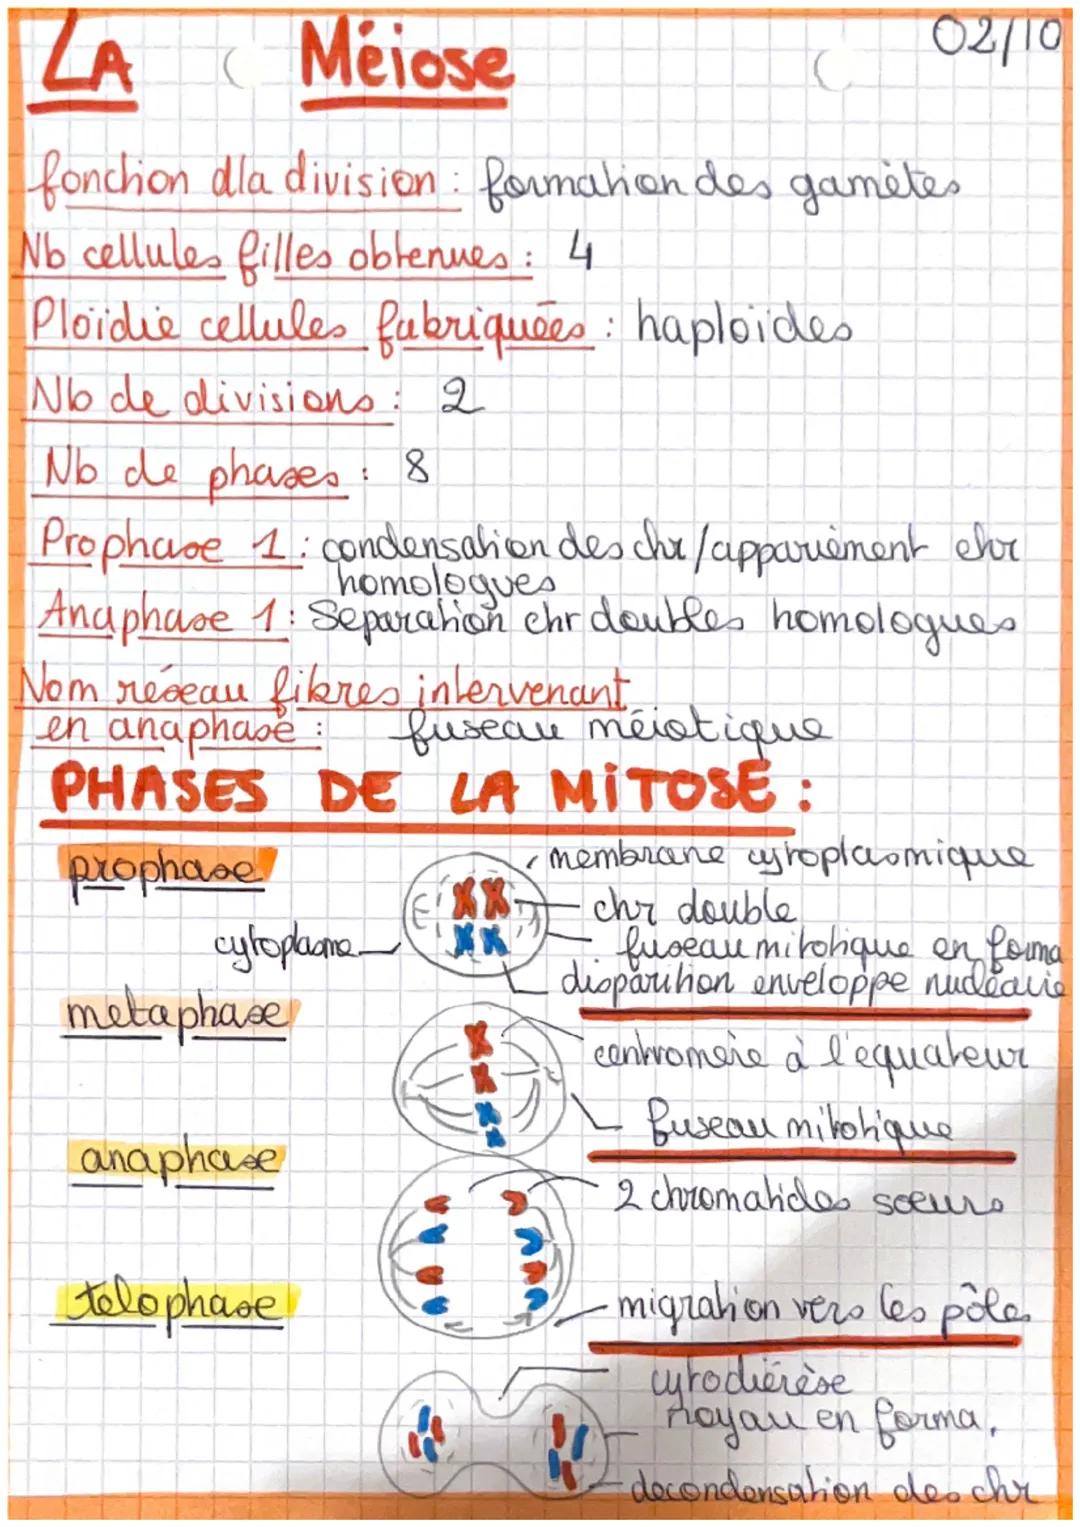 LA Méiose 02/10
fonction dla division : formation des gamètes
Nb cellules filles obtenues : 4
Ploïdie cellules fabriquées : haploïdes
Nb de divisions : 2
Nb de phases : 8
Prophase 1 : condensation des chr/appariément chr
homologues
Anaphase 1 : Séparation chr doubles homologues
Nom réseau fibres intervenant
en anaphase : fuseau méiotique
PHASES DE LA MITOSE :
prophase
membrane cytoplasmique
chr double
cytoplasme
fuseau mitotique en forma
disparition enveloppe nucléaire
metaphase
centromère à l'equateur
fuseau mitotique
anaphase
2 chromatides soeurs
telophase
migration vers les pôles
cytodiérèse
noyau en forma.
decondensation des chr